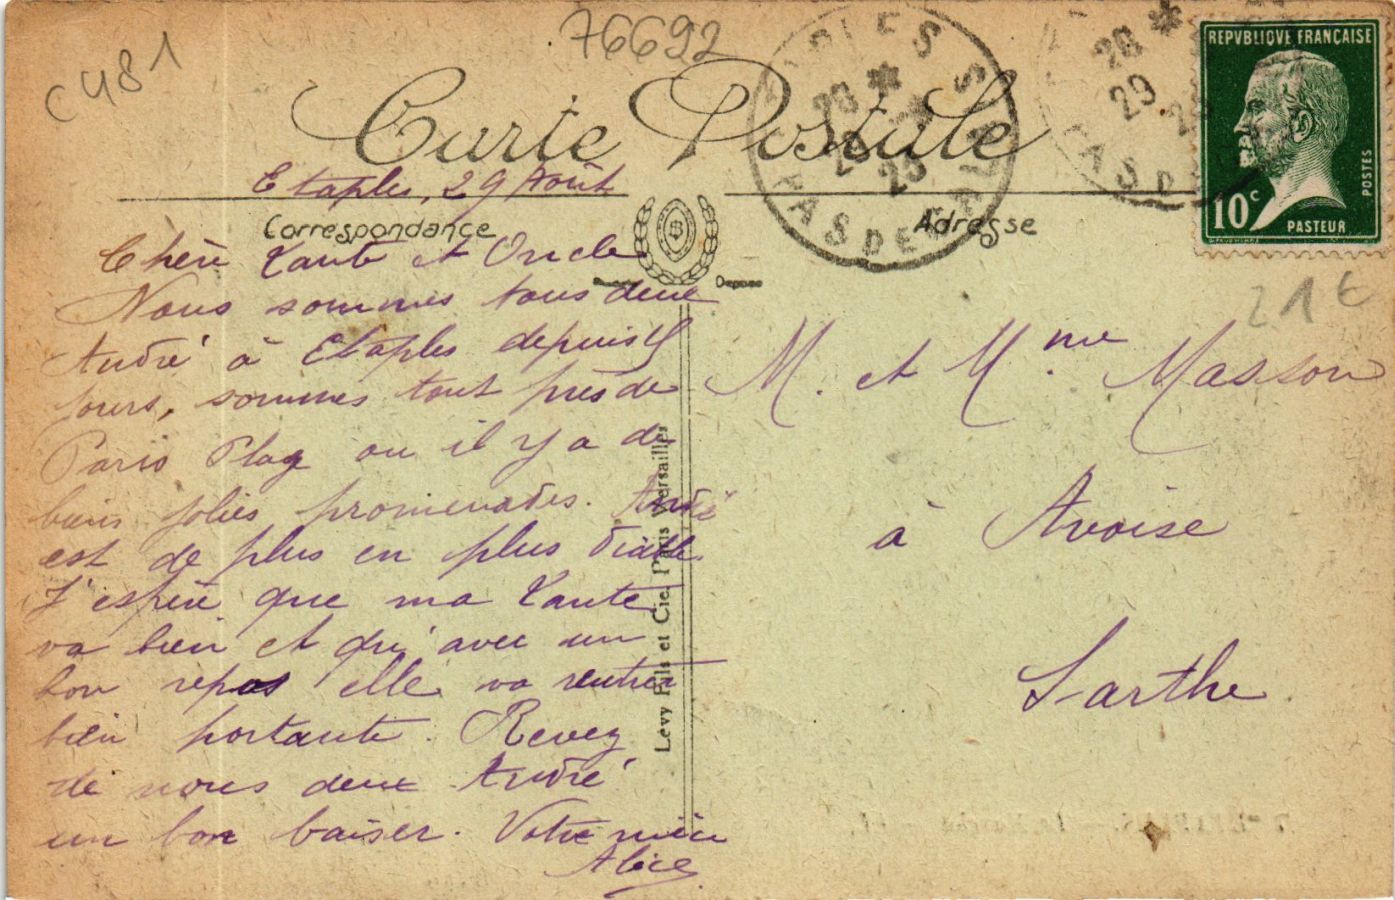 C481
76692
Carte Postale
ETAPLES SUR MER
PAS DE CALAIS
20 *
29
25
20 *
29
25
PAS DE
REPVBLIQVE FRANÇAISE
10c
POSTES
PASTEUR
Correspondance
Adresse
Deposé
21€
Etaples, 29 Août
Chère Tante et Oncle
Nous sommes tous deux
André à Etaples depuis 8
jours, sommes tout près de
Paris Plag ou il y a de
bien jolies promenades. André
est de plus en plus diable
J'espère que ma Tante
va bien et qu'avec un
bon repos elle va rentrer
bien portante. Recevez
de nous deux André
un bon baiser. Votre nièce
Alice
M. et Mme Masson
à Avoise
Sarthe
Levy Fils et Cie. Paris Versailles